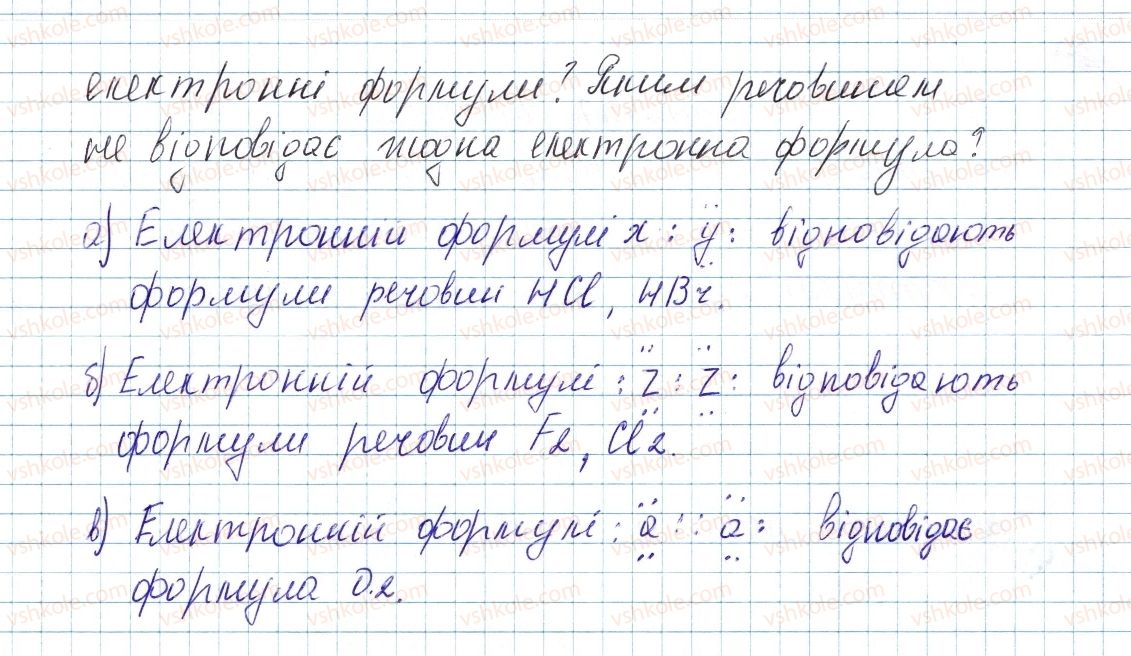 електронні формули? Яким речовинам
не відповідає жодна електронна формула?
а) Електронній формулі x : ÿ : відповідають
формули речовин HCl, HBr.
б) Електронній формулі : Z : Z : відповідають
формули речовин F2, Cl2.
в) Електронній формулі : ä : : ä : відповідає
формула O2.